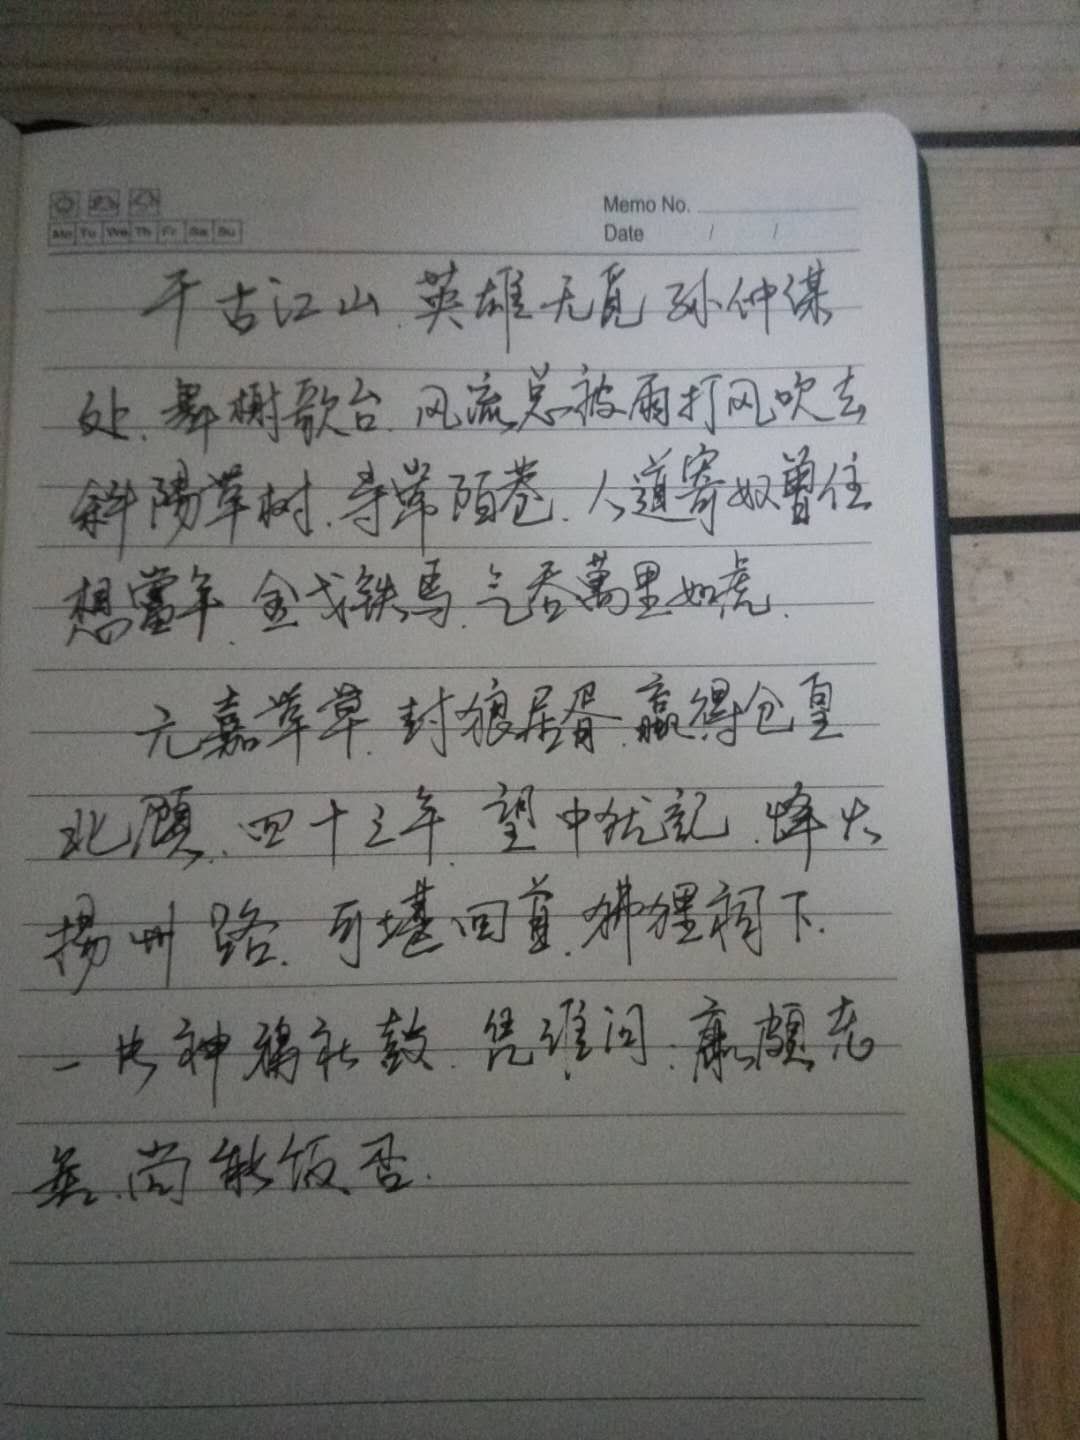 Memo No.
Mo Tu We Th Fr Sa Su
Date / /
千古江山.英雄无覓孙仲谋
处.舞榭歌台.风流总被雨打风吹去
斜陽草树.寻常陌巷.人道寄奴曾住
想當年.金戈铁馬.气吞萬里如虎.
元嘉草草.封狼居胥.赢得仓皇
北顧.四十三年.望中犹記.烽火
揚州路.可堪回首.狒狸祠下.
一片神鴉社鼓.凭谁问.廉颇老
矣.尚能饭否.